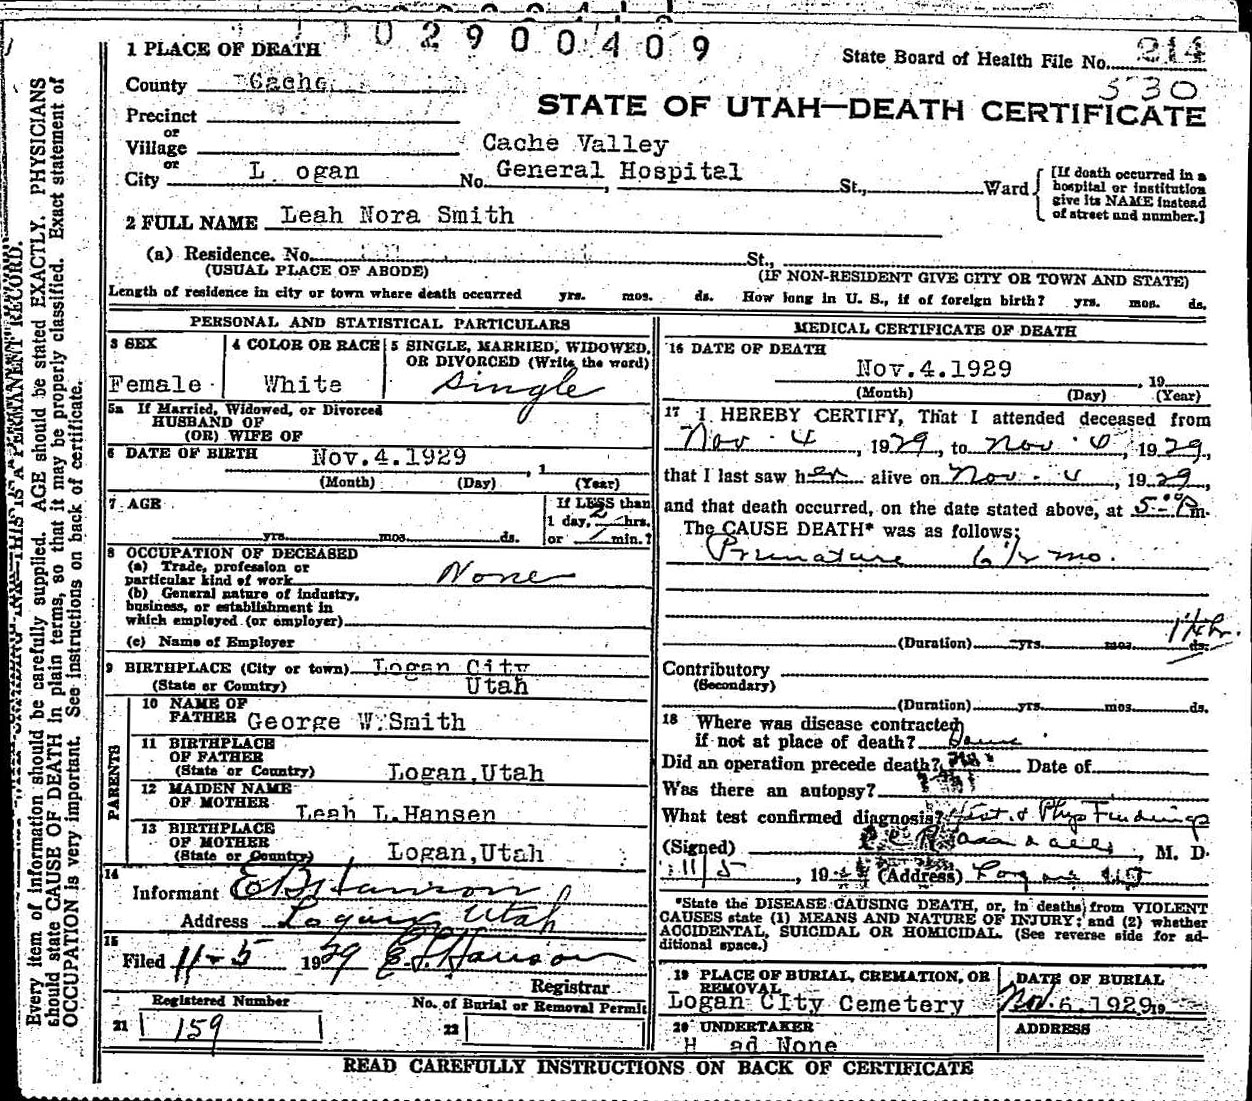 1 0 2 9 0 0 4 0 9
1 PLACE OF DEATH
State Board of Health File No. 214
530
County Cache
STATE OF UTAH—DEATH CERTIFICATE
Precinct
or
Village
Cache Valley
or
City L ogan No. General Hospital St., Ward
[If death occurred in a hospital or institution give its NAME instead of street and number.]
2 FULL NAME Leah Nora Smith
(a) Residence. No. St.,
(USUAL PLACE OF ABODE) (IF NON-RESIDENT GIVE CITY OR TOWN AND STATE)
Length of residence in city or town where death occurred yrs. mos. ds. How long in U. S., if of foreign birth? yrs. mos. ds.
PERSONAL AND STATISTICAL PARTICULARS
3 SEX
Female
4 COLOR OR RACE
White
5 SINGLE, MARRIED, WIDOWED,
OR DIVORCED (Write the word)
Single
5a If Married, Widowed, or Divorced
HUSBAND OF
(OR) WIFE OF
6 DATE OF BIRTH Nov.4.1929 , 1
(Month) (Day) (Year)
7 AGE
yrs. mos. ds.
If LESS than
1 day, 2 hrs.
or min.?
8 OCCUPATION OF DECEASED
(a) Trade, profession or
particular kind of work None
(b) General nature of industry,
business, or establishment in
which employed (or employer)
(c) Name of Employer
9 BIRTHPLACE (City or town) Logan City
(State or Country) Utah
PARENTS
10 NAME OF
FATHER George W.Smith
11 BIRTHPLACE
OF FATHER
(State or Country) Logan,Utah
12 MAIDEN NAME
OF MOTHER Leah L.Hansen
13 BIRTHPLACE
OF MOTHER
(State or Country) Logan,Utah
14
Informant
Address Logan, Utah
15
Filed 11-5 1929
Registrar
Registered Number
21 159
No. of Burial or Removal Permit
22
MEDICAL CERTIFICATE OF DEATH
16 DATE OF DEATH
Nov.4.1929 , 19
(Month) (Day) (Year)
17 I HEREBY CERTIFY, That I attended deceased from
Nov. 4 , 1929, to Nov. 4, 1929,
that I last saw her alive on Nov. 4 , 1929,
and that death occurred, on the date stated above, at 5:00 P.m.
The CAUSE DEATH* was as follows:
Premature 6 1/2 mo.
1 1/4 hr.
(Duration) yrs. mos. ds.
Contributory
(Secondary)
(Duration) yrs. mos. ds.
18 Where was disease contracted
if not at place of death?
Did an operation precede death? no Date of
Was there an autopsy?
What test confirmed diagnosis? Hist. & Phys Findings
(Signed) , M. D.
11/5 , 19 (Address) Logan
*State the DISEASE CAUSING DEATH, or, in deaths from VIOLENT
CAUSES state (1) MEANS AND NATURE OF INJURY; and (2) whether
ACCIDENTAL, SUICIDAL OR HOMICIDAL. (See reverse side for ad-
ditional space.)
19 PLACE OF BURIAL, CREMATION, OR
REMOVAL
Logan CIty Cemetery
DATE OF BURIAL
Nov.6.1929 19
20 UNDERTAKER
H ad None
ADDRESS
READ CAREFULLY INSTRUCTIONS ON BACK OF CERTIFICATE
THIS IS A PERMANENT RECORD.
Every item of information should be carefully supplied. AGE should be stated EXACTLY. PHYSICIANS
should state CAUSE OF DEATH in plain terms, so that it may be properly classified. Exact statement of
OCCUPATION is very important. See instructions on back of certificate.